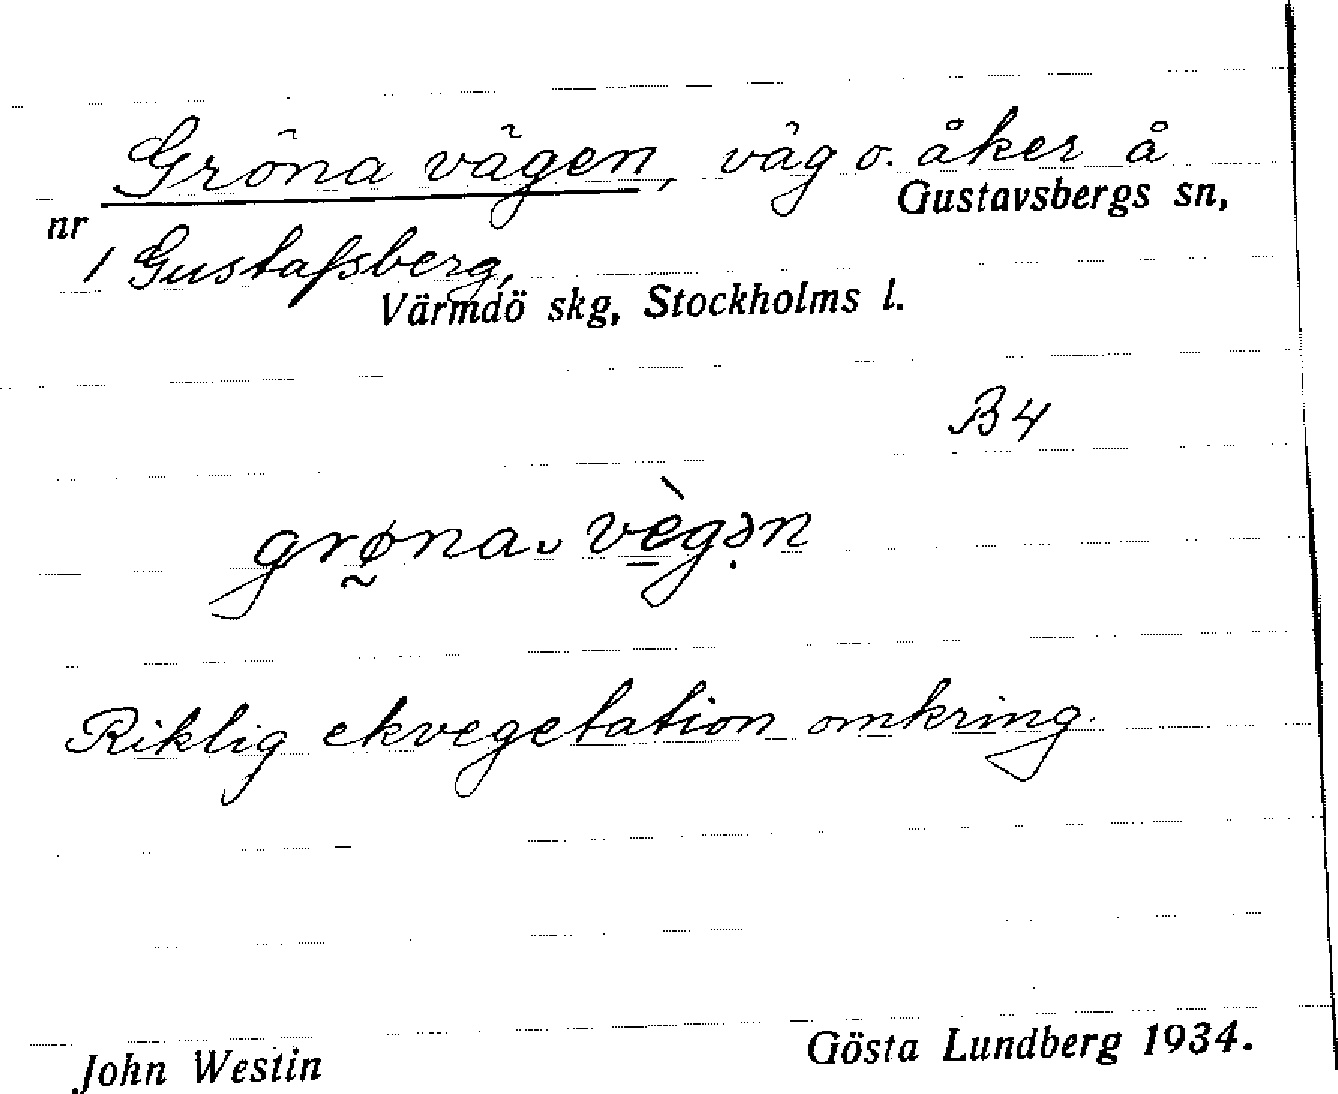 Gröna vägen, väg o. åker å
Gustavsbergs sn,
nr
1 Gustafsberg,
Värmdö skg, Stockholms l.
B4
grøna vègən
Riklig ekvegetation omkring.
John Westin
Gösta Lundberg 1934.